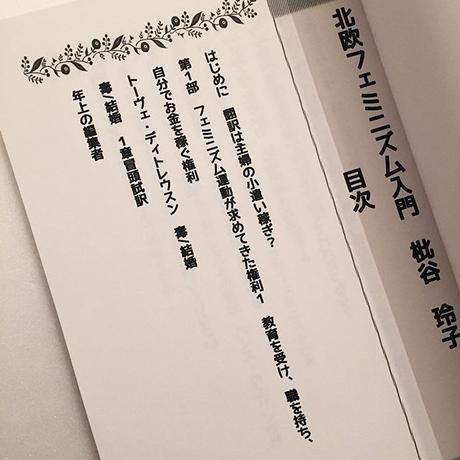 北欧フェミニズム入門 枇谷 玲子
目次
はじめに 翻訳は主婦の小遣い稼ぎ?
第1部 フェミニズム運動が求めてきた権利1 教育を受け、職を持ち、
自分でお金を稼ぐ権利
トーヴェ・ディトレウスン 毒/結婚
毒/結婚 1章冒頭試訳
年上の編集者